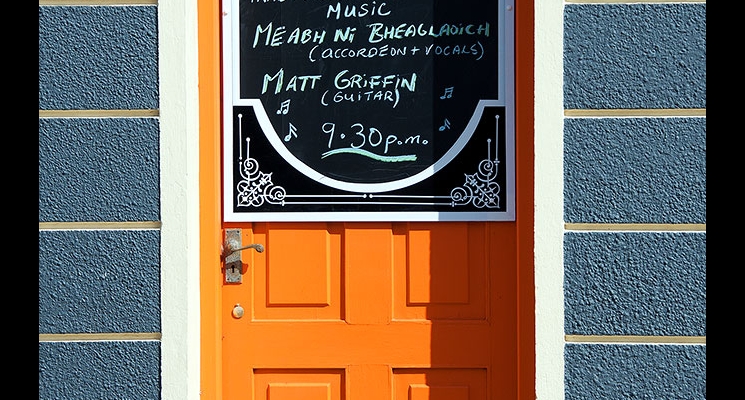 MUSIC
MEABH NI BHEAGLAOICH
(ACCORDEON + VOCALS)
MATT GRIFFIN
(GUITAR)
9.30 p.m.